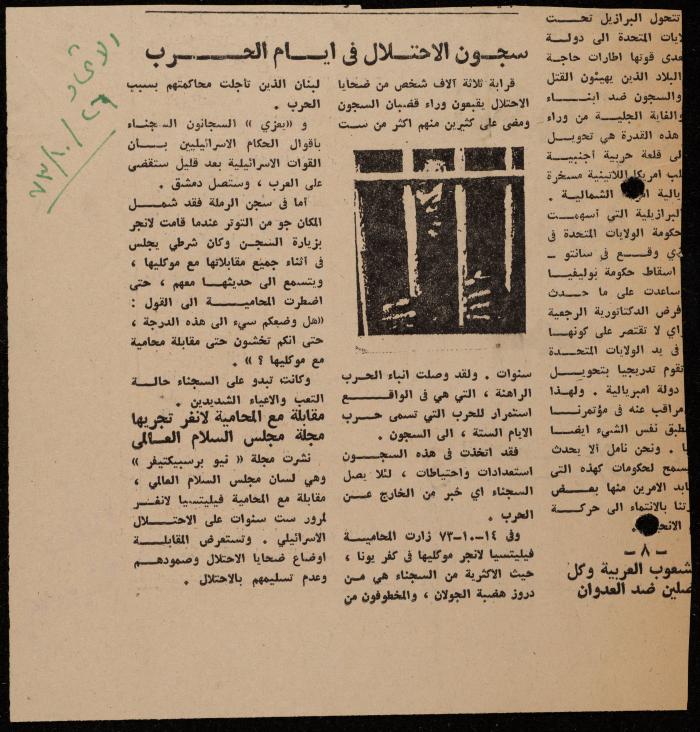 الاتحاد
٢٦/١٠/٧٣
سجون الاحتلال في ايام الحرب
قرابة ثلاثة آلاف شخص من ضحايا
الاحتلال يقبعون وراء قضبان السجون
ومضى على كثيرين منهم اكثر من ست
سنوات . ولقد وصلت انباء الحرب
الراهنة ، التي هي في الواقع
استمرار للحرب التي تسمى حرب
الايام الستة ، الى السجون .
فقد اتخذت في هذه السجون
استعدادات واحتياطات ، لئلا يصل
السجناء اي خبر من الخارج عن
الحرب .
وفي ١٤-١٠-٧٣ زارت المحامية
فيليتسيا لانجر موكليها في كفر يونا ،
حيث الاكثرية من السجناء هي من
دروز هضبة الجولان ، والمخطوفون من
لبنان الذين تاجلت محاكمتهم بسبب
الحرب .
و «يعزي » السجانون السجناء
باقوال الحكام الاسرائيليين بـان
القوات الاسرائيلية بعد قليل ستقضي
على العرب ، وستصل دمشق .
اما في سجن الرملة فقد شمل
المكان جو من التوتر عندما قامت لانجر
بزيارة السجن وكان شرطي يجلس
في اثناء جميع مقابلاتها مع موكليها ،
ويتسمع الى حديثها معهم ، حتى
اضطرت المحامية الى القول :
«هل وضعكم سيء الى هذه الدرجة ،
حتى انكم تخشون حتى مقابلة محامية
مع موكليها ؟ » .
وكانت تبدو على السجناء حالة
التعب والاعياء الشديدين .
مقابلة مع المحامية لانغر تجريها
مجلة مجلس السلام العالمي
نشرت مجلة « نيو برسبيكتيفر »
وهي لسان مجلس السلام العالمي ،
مقابلة مع المحامية فيليتسيا لانغر
لمرور ست سنوات على الاحتلال
الاسرائيلي . وتستعرض المقابلة
اوضاع ضحايا الاحتلال وصمودهم
وعدم تسليمهم بالاحتلال .
تتحول البرازيل تحت
لايات المتحدة الى دولة
عدى قوتها اطارات حاجة
البلاد الذين يهيئون القتل
والسجون ضد ابناء
والغاية الجلية من وراء
هذه القدرة هي تحويل
الى قلعة حربية اجنبية
لب امريكا اللاتينية مسخرة
يالية الشمالية .
البرازيلية التي أسهمت
حكومة الولايات المتحدة في
ذي وقع في سانتو -
اسقاط حكومة بوليفيا
ساعدت على ما حدث
فرض الدكتاتورية الرجعية
اي لا تقتصر على كونها
في يد الولايات المتحدة
تقوم تدريجيا بتحويل
دولة امبريالية . ولهذا
مراقب عنه في مؤتمرنا
طبق نفس الشيء ايضا
ا . ونحن نامل الا يحدث
سمح لحكومات كهذه التي
ابد الامرين منها بعض
رتنا بالانتماء الى حركة
- ٨ -
لشعوب العربية وكل
ضلين ضد العدوان